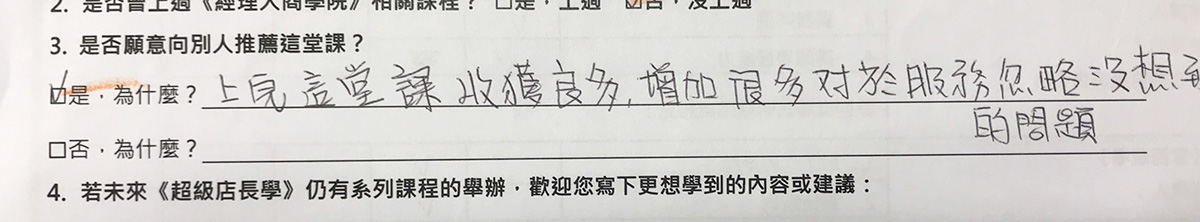 2. 是否曾上過《經理人商學院》相關課程？ □是，上過 ☑否，沒上過
3. 是否願意向別人推薦這堂課？
☑是，為什麼？上完這堂課收獲良多，增加很多対於服務忽略沒想到
的問題
□否，為什麼？
4. 若未來《超級店長學》仍有系列課程的舉辦，歡迎您寫下更想學到的內容或建議：